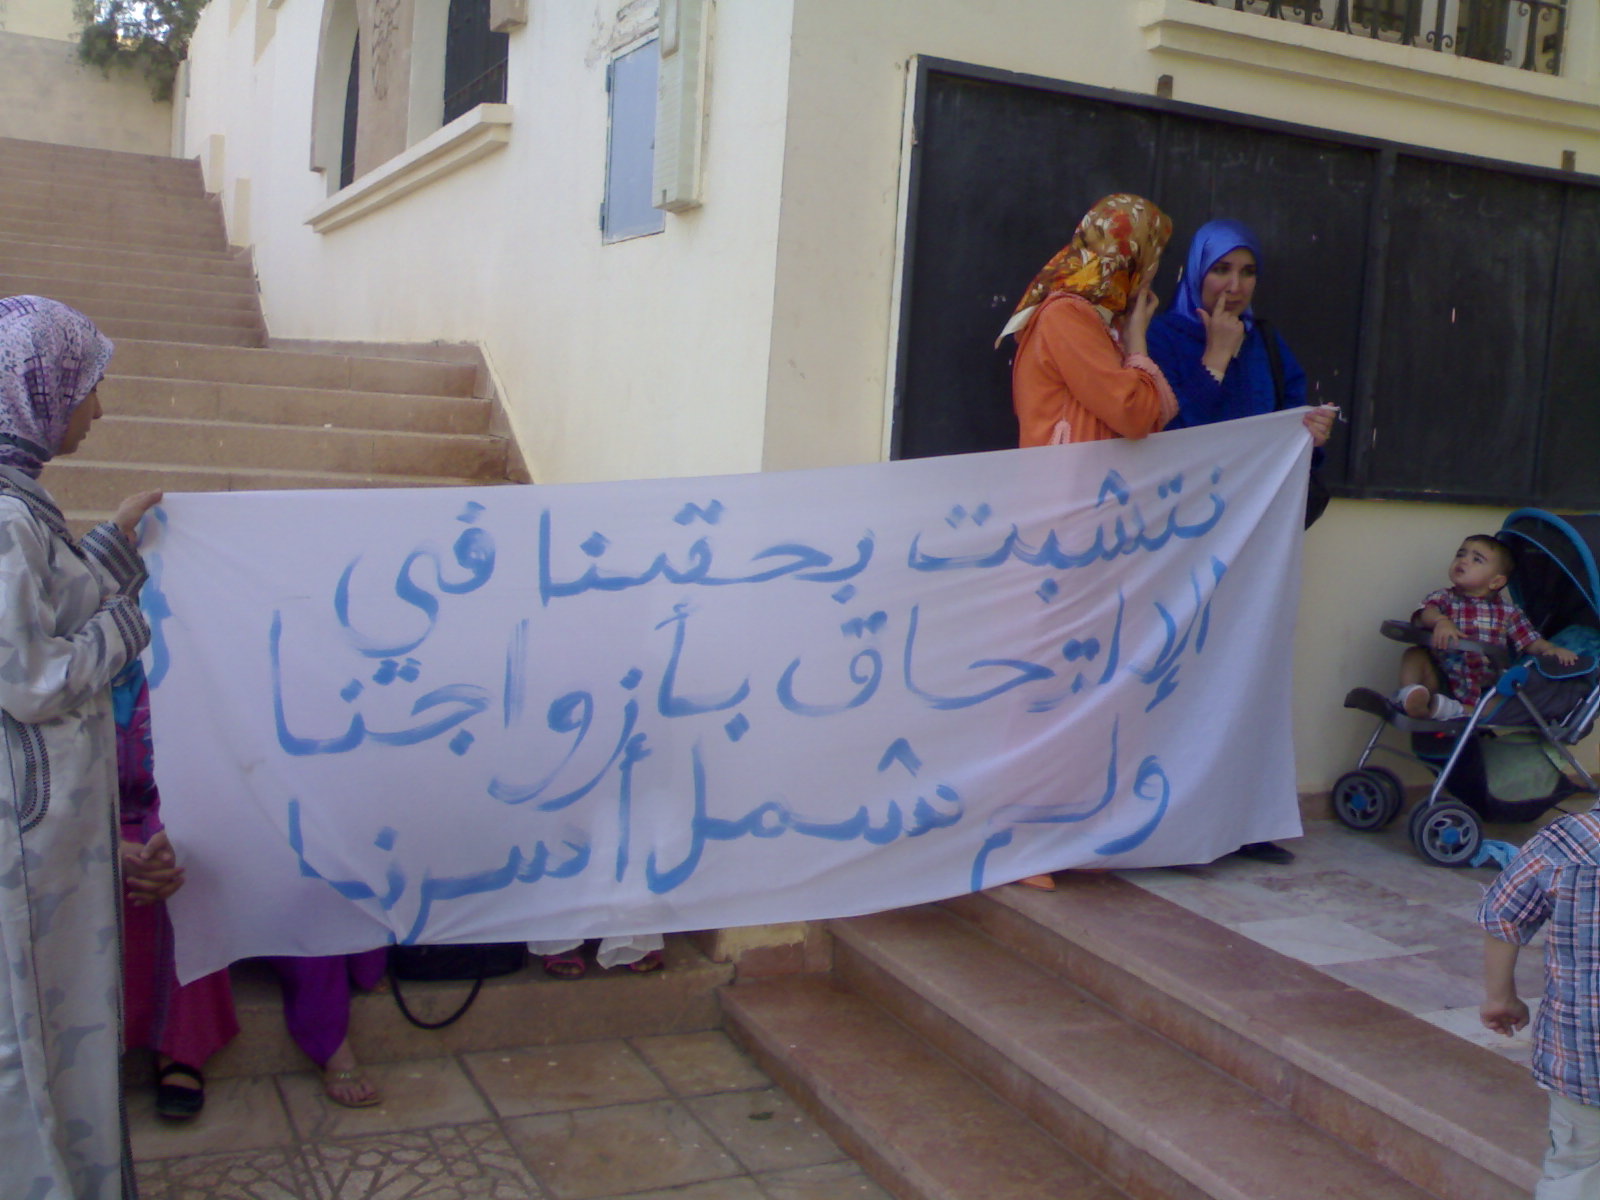 نتشبت بحقنا في
الإلتحاق بأزواجنا
ولم شمل أسرنا